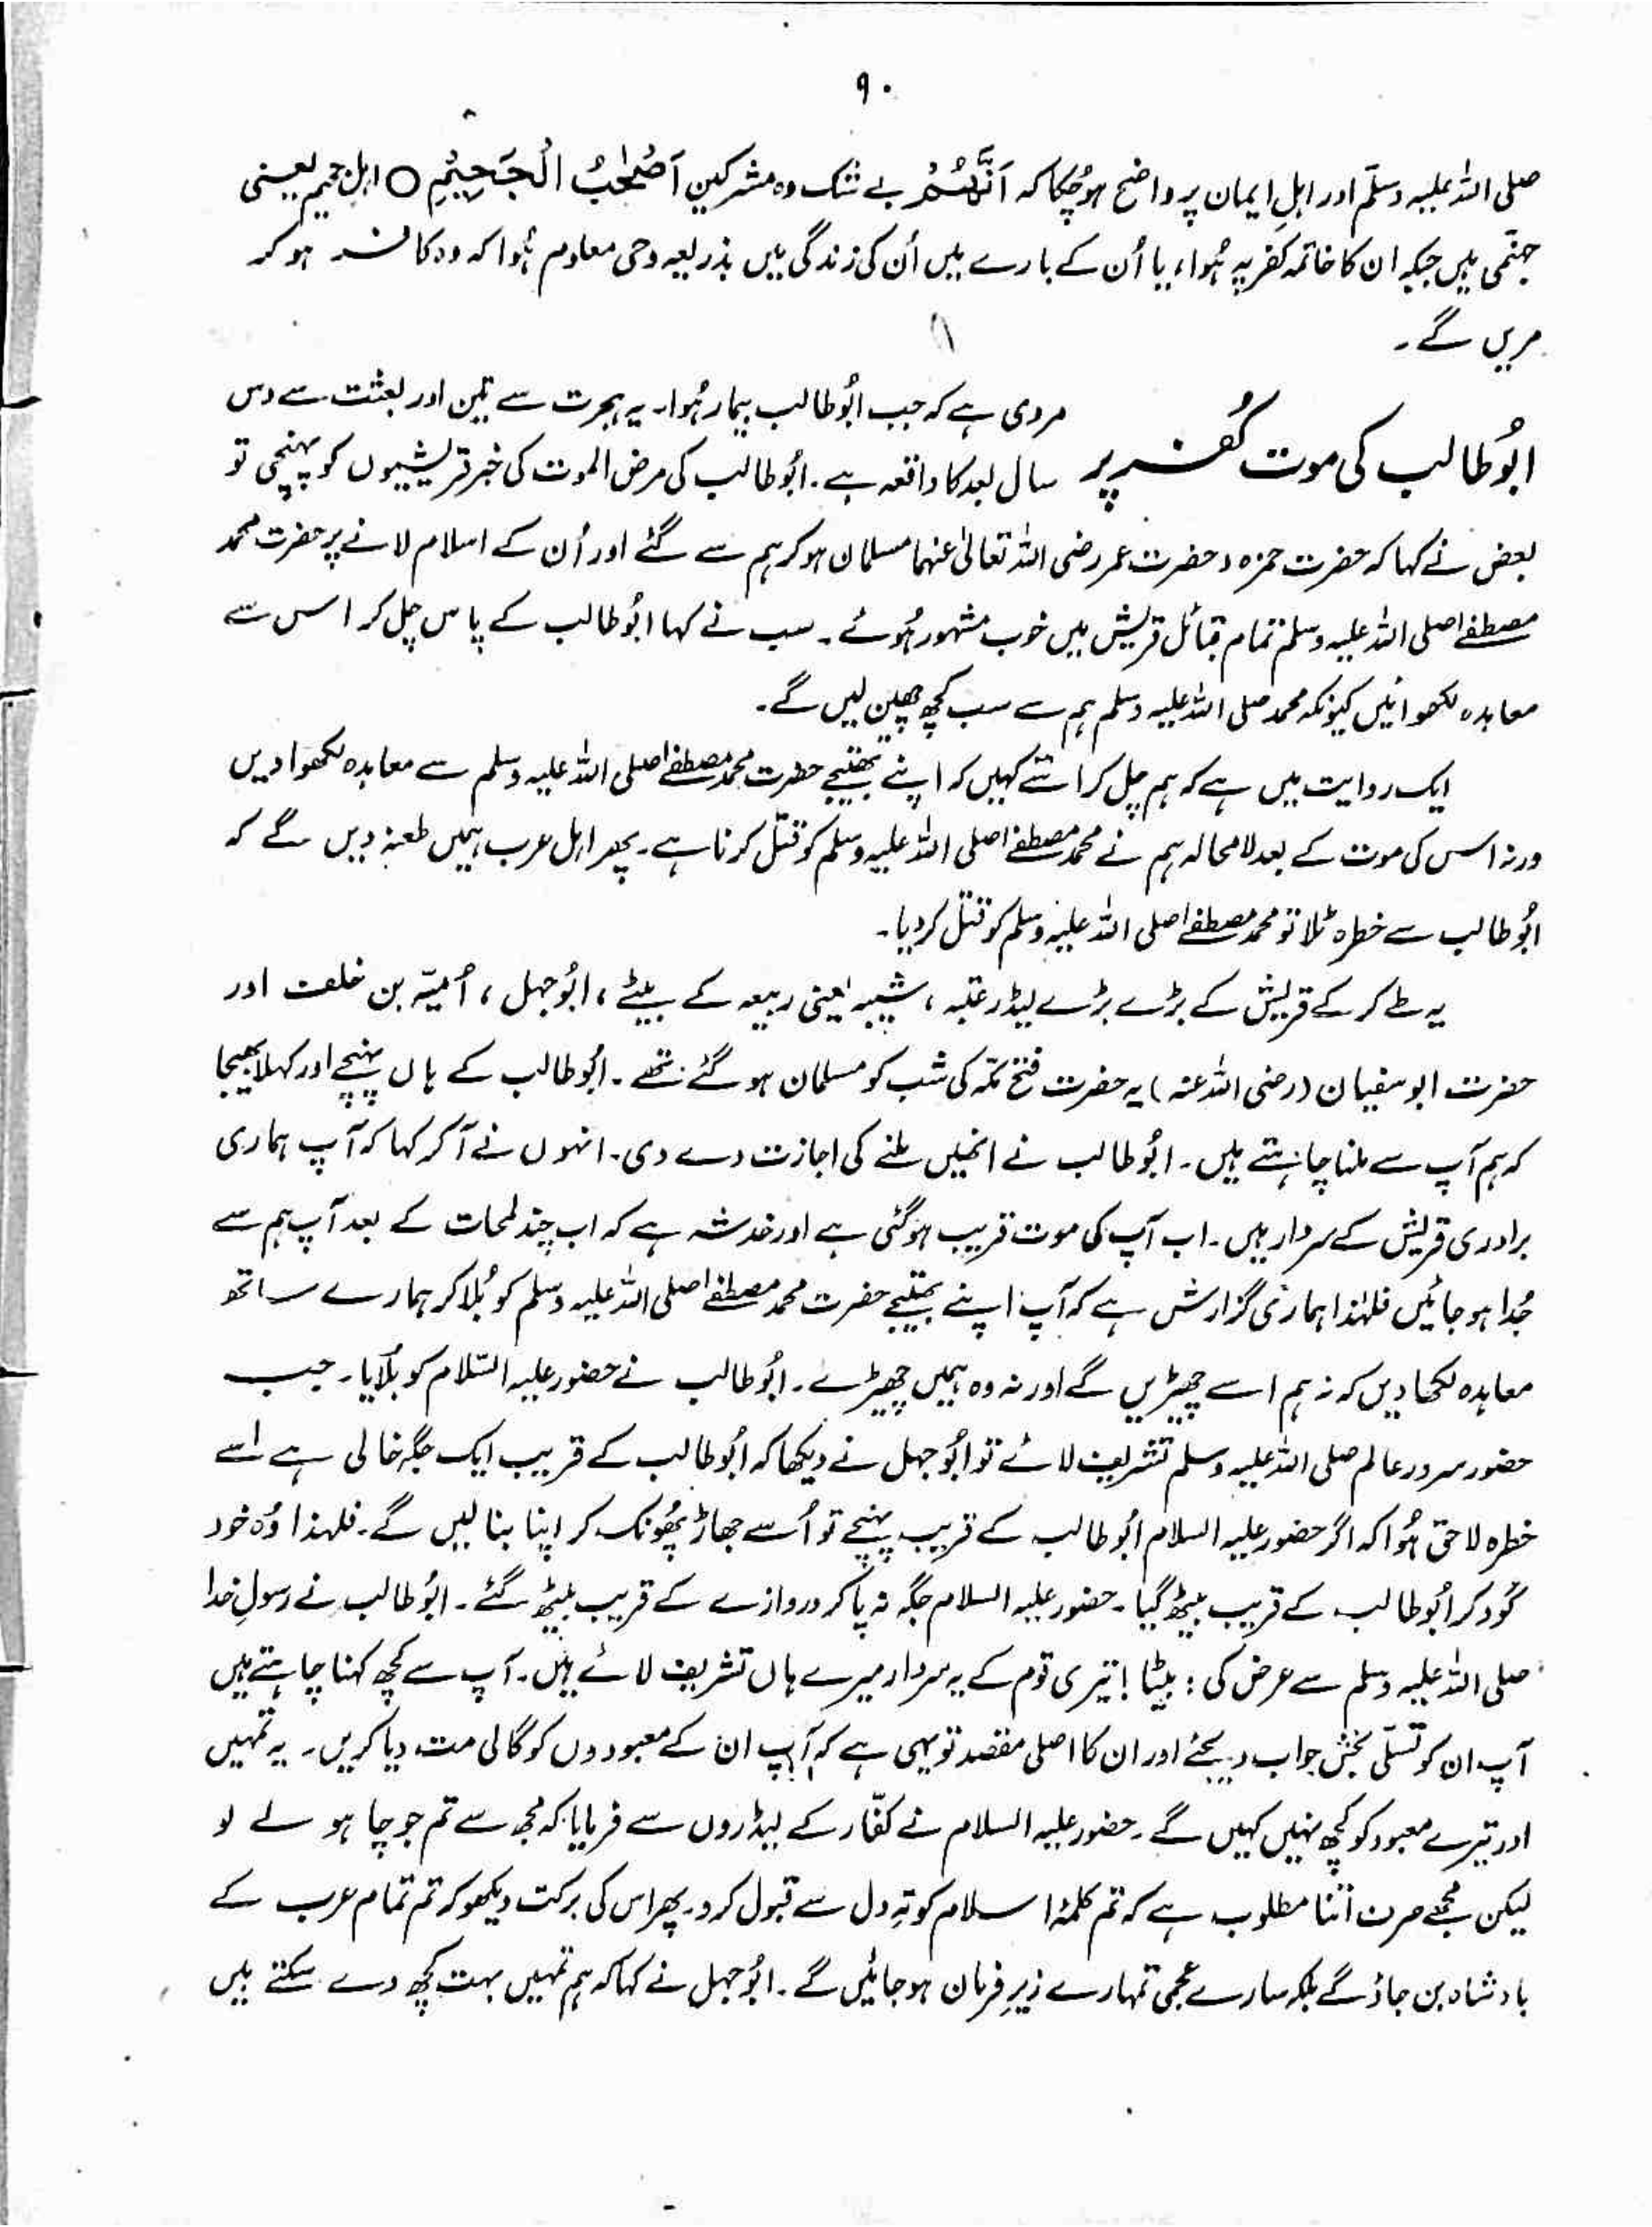 ۹۰
صلی اللہ علیہ وسلم اور اہلِ ایمان پر واضح ہو چکا کہ اَنَّهُمْ بے شک وہ مشرکین اَصْحٰبُ الْجَحِیْمِ ○ اہلِ جحیم یعنی
جہنّمی ہیں جبکہ ان کا خاتمہ کفر پر ہُوا، یا اُن کے بارے میں اُن کی زندگی میں بذریعہ وحی معلوم ہُوا کہ وہ کافر ہو کر
مریں گے۔
ابُوطالب کی موت کُفر پر
مروی ہے کہ جب ابُوطالب بیمار ہُوا۔ یہ ہجرت سے تین اور بعثت سے دس
سال بعد کا واقعہ ہے۔ ابُوطالب کی مرض الموت کی خبر قریشیوں کو پہنچی تو
بعض نے کہا کہ حضرت حمزہ و حضرت عمر رضی اللہ تعالیٰ عنہما مسلمان ہو کر ہم سے گئے اور اُن کے اسلام لانے پر حضرت محمد
مصطفےٰ صلی اللہ علیہ وسلم تمام قبائل قریش میں خوب مشہور ہُوئے۔ سب نے کہا ابُوطالب کے پاس چل کر اس سے
معاہدہ لکھوائیں کیونکہ محمد صلی اللہ علیہ وسلم ہم سے سب کچھ چھین لیں گے۔
ایک روایت میں ہے کہ ہم چل کر اسے کہیں کہ اپنے بھتیجے حضرت محمد مصطفےٰ صلی اللہ علیہ وسلم سے معاہدہ لکھوا دیں
ورنہ اس کی موت کے بعد لامحالہ ہم نے محمد مصطفےٰ صلی اللہ علیہ وسلم کو قتل کرنا ہے۔ پھر اہل عرب ہمیں طعنہ دیں گے کہ
ابُوطالب سے خطرہ ٹلا تو محمد مصطفےٰ صلی اللہ علیہ وسلم کو قتل کر دیا۔
یہ طے کر کے قریش کے بڑے بڑے لیڈر عتبہ، شیبہ یعنی ربیعہ کے بیٹے، ابُوجہل، اُمیّہ بن خلف اور
حضرت ابوسفیان (رضی اللہ عنہ) یہ حضرت فتح مکّہ کی شب کو مسلمان ہو گئے تھے۔ ابُوطالب کے ہاں پہنچے اور کہلا بھیجا
کہ ہم آپ سے ملنا چاہتے ہیں۔ ابُوطالب نے انھیں ملنے کی اجازت دے دی۔ انہوں نے آ کر کہا کہ آپ ہماری
برادری قریش کے سردار ہیں۔ اب آپ کی موت قریب ہو گئی ہے اور خدشہ ہے کہ اب چند لمحات کے بعد آپ ہم سے
جُدا ہو جائیں فلہٰذا ہماری گزارش ہے کہ آپ اپنے بھتیجے حضرت محمد مصطفےٰ صلی اللہ علیہ وسلم کو بُلا کر ہمارے ساتھ
معاہدہ لکھا دیں کہ نہ ہم اسے چھیڑیں گے اور نہ وہ ہمیں چھیڑے۔ ابُوطالب نے حضور علیہ السّلام کو بُلایا۔ جب
حضور سرور عالم صلی اللہ علیہ وسلم تشریف لائے تو ابُوجہل نے دیکھا کہ ابُوطالب کے قریب ایک جگہ خالی ہے اسے
خطرہ لاحق ہُوا کہ اگر حضور علیہ السلام ابُوطالب کے قریب پہنچے تو اُسے جھاڑ پُھونک کر اپنا بنا لیں گے۔ فلہذا وُہ خود
کُود کر ابُوطالب کے قریب بیٹھ گیا۔ حضور علیہ السلام جگہ نہ پا کر دروازے کے قریب بیٹھ گئے۔ ابُوطالب نے رسولِ خدا
صلی اللہ علیہ وسلم سے عرض کی: بیٹا! تیری قوم کے یہ سردار میرے ہاں تشریف لائے ہیں۔ آپ سے کچھ کہنا چاہتے ہیں
آپ ان کو تسلّی بخش جواب دیجئے اور ان کا اصلی مقصد تو یہی ہے کہ آپ ان کے معبودوں کو گالی مت دیا کریں۔ یہ تمہیں
اور تیرے معبود کو کچھ نہیں کہیں گے۔ حضور علیہ السلام نے کفّار کے لیڈروں سے فرمایا کہ مجھ سے تم جو چاہو لے لو
لیکن مجھے صرف اتنا مطلوب ہے کہ تم کلمۂ اسلام کو تہِ دل سے قبول کرو۔ پھر اس کی برکت دیکھو کہ تم تمام عرب کے
بادشاہ بن جاؤ گے بلکہ سارے عجمی تمہارے زیرِ فرمان ہو جائیں گے۔ ابُوجہل نے کہا کہ ہم تمہیں بہت کچھ دے سکتے ہیں